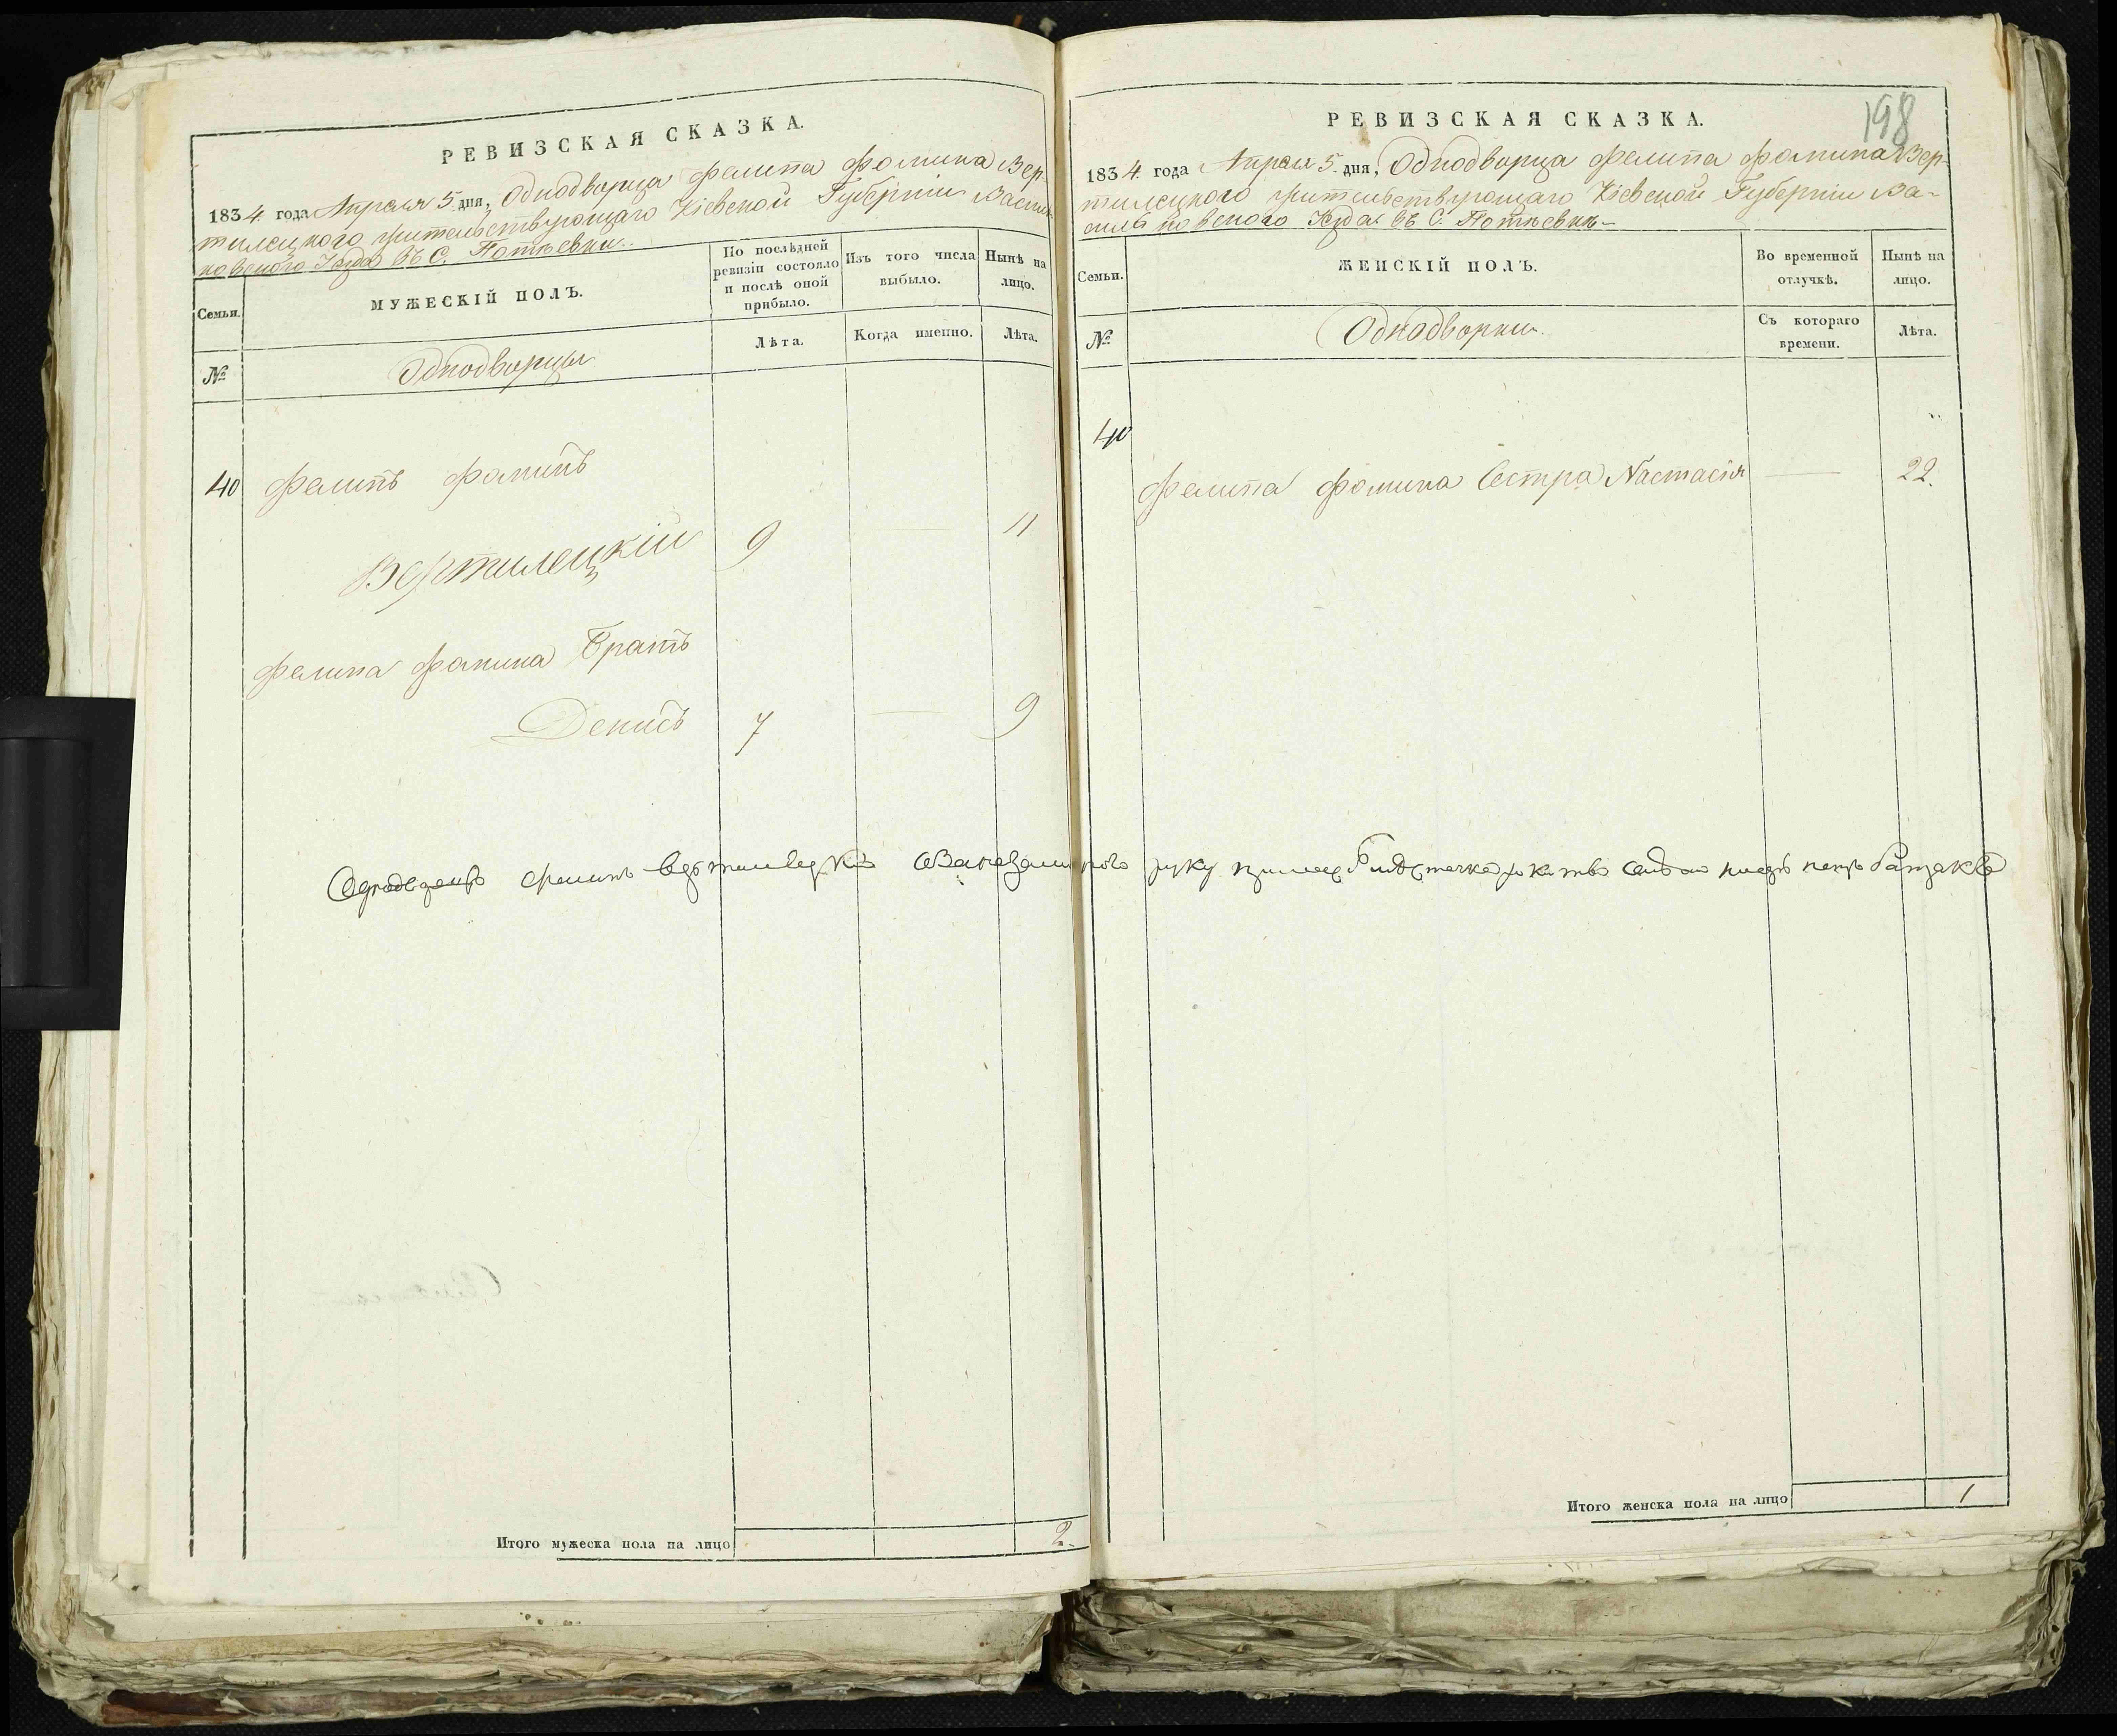 РЕВИЗСКАЯ СКАЗКА.
1834 года Апреля 5 дня, Однодворца Фелипа Фомина Вер-
тилецкого жительствующаго Кіевской Губерніи Василь-
ковского Уезда въ С. Потіевки
Семьи.
МУЖЕСКІЙ ПОЛЪ.
По послѣдней
ревизіи состояло
и послѣ оной
прибыло.
Изъ того числа
выбыло.
Нынѣ на
лицо.
№
Однодворцы
Лѣта.
Когда именно.
Лѣта.
40 Фелипъ Фоминъ
Вертилецкій 9 — 11
Фелипа Фомина Братъ
Денисъ 7 — 9
Итого мужеска пола на лицо 2.
198
РЕВИЗСКАЯ СКАЗКА.
1834 года Апреля 5 дня, Однодворца Фелипа Фомина Вер-
тилецкого жительствующаго Кіевской Губерніи Ва-
сильковского Уезда въ С. Потіевкѣ
Семьи.
ЖЕНСКІЙ ПОЛЪ.
Во временной
отлучкѣ.
Нынѣ на
лицо.
№
Однодворки
Съ котораго
времени.
Лѣта.
40
Фелипа Фомина Сестра Настасія — 22.
Фелипъ руку
Итого женска пола на лицо 1